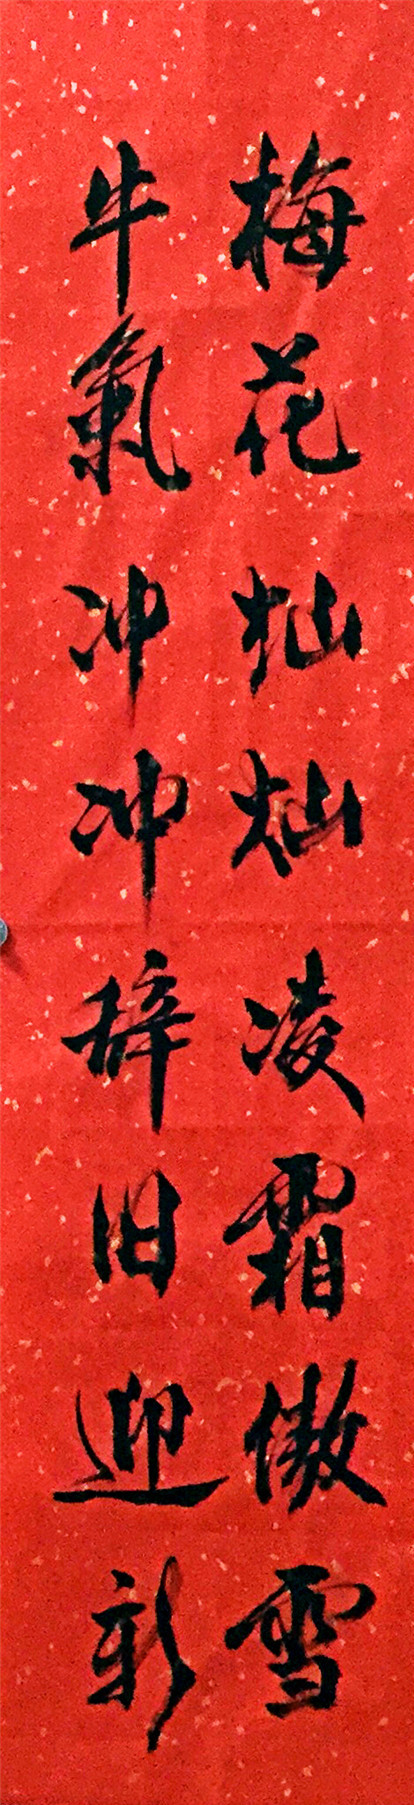 梅花灿灿凌霜傲雪
牛氣冲冲辞旧迎新